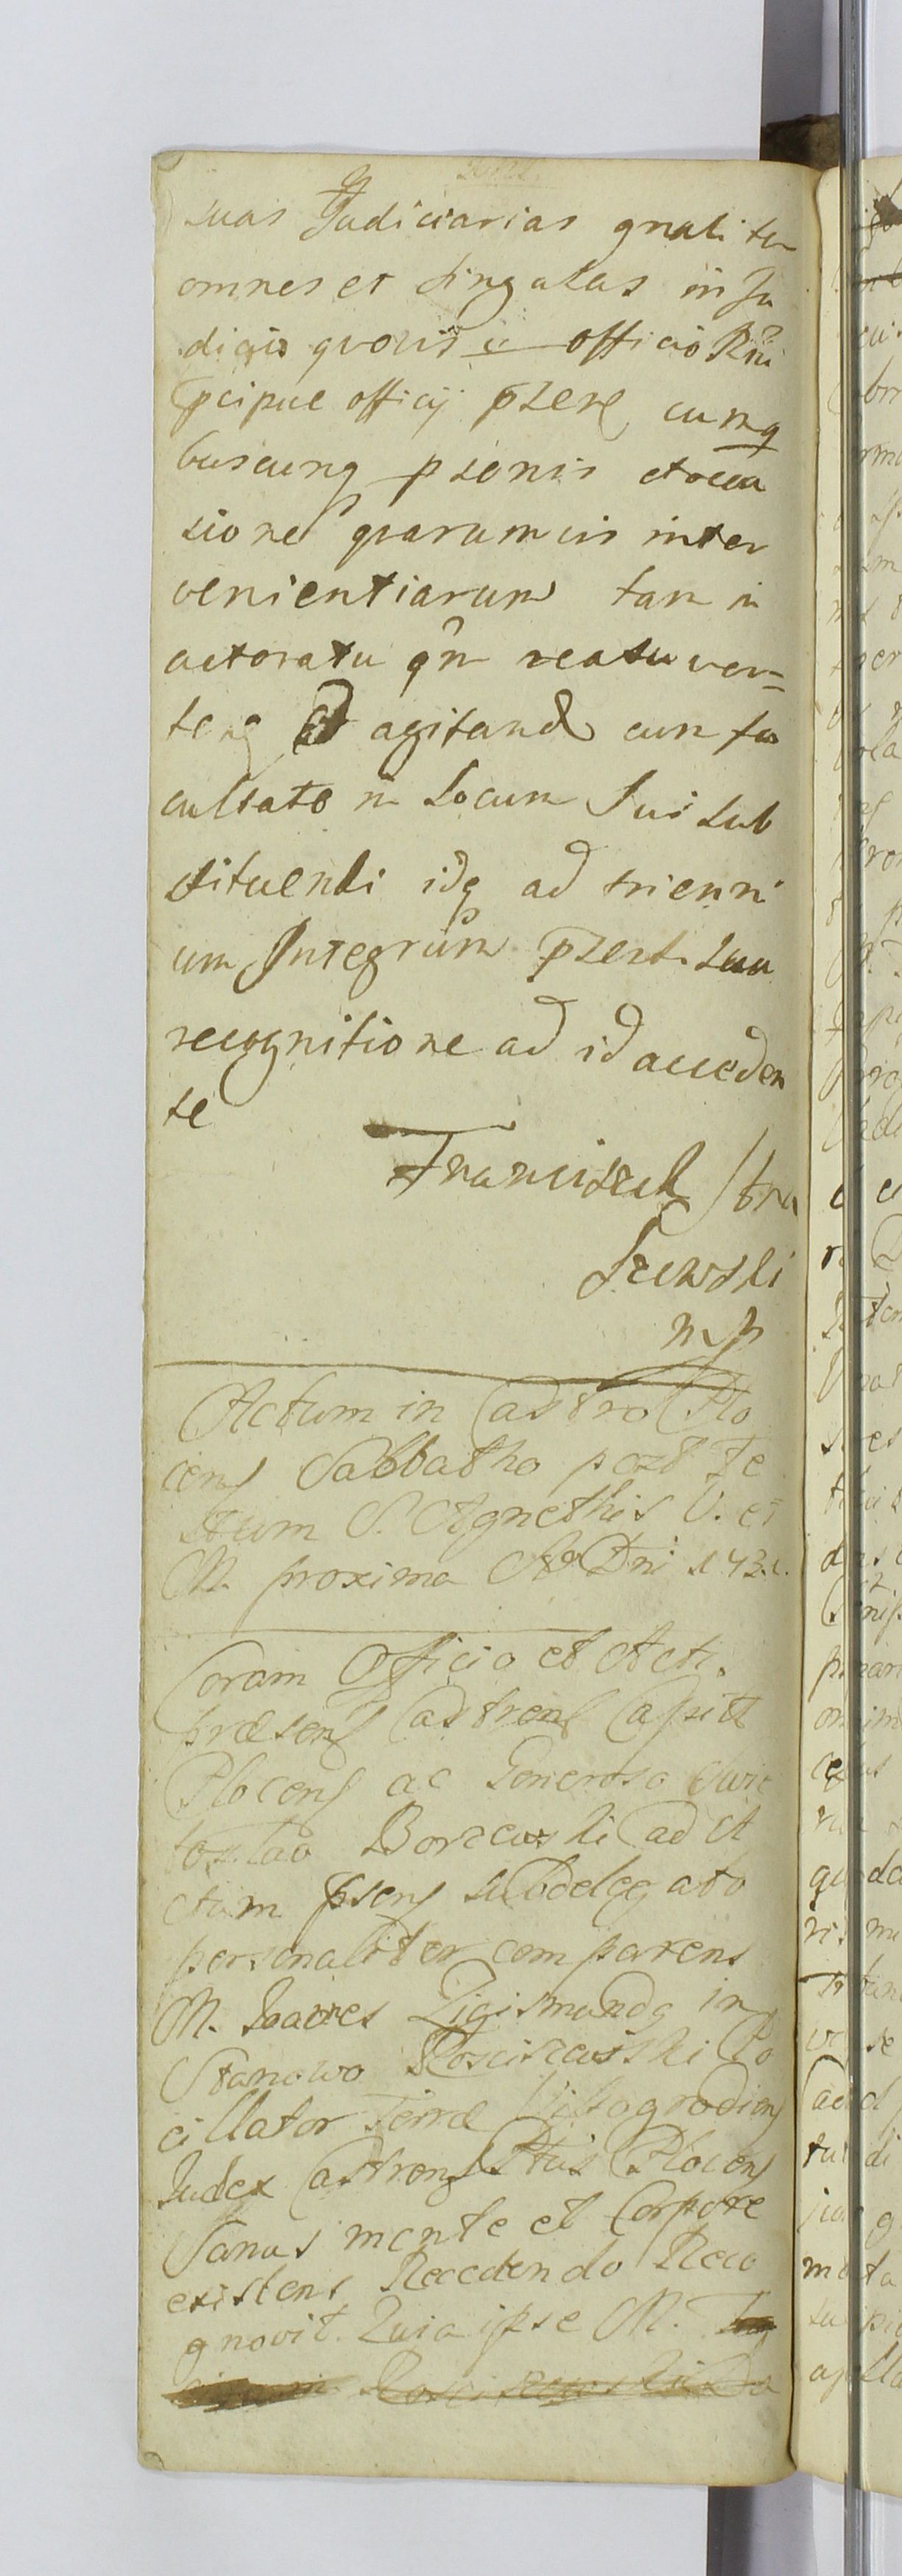 suas Judiciarias gnali ter
omnes et singulas in Ju
dicijs quovis officio Rni
pcipue officij pzens cumq
buscunq psonis et occa
sione quarumvis inter
venientiarum tam in
actoratu qm reatu ver=
teng et agitand cum fa
cultate in Locum Sui sub
stituendi idq ad trienni
um Integrum pzenti sua
recognitione ad id acceden
te
Franciszek Stra
szewski
mp
Actum in Castro Plo
cens Sabbatho post Fe
stum S. Agnethis V. et
M. proxima Ao Dni
Coram Officio et Actis
præsens Castrens Capit
Plocens ac Generoso Swię
tosłao Borzewski ad A
ctum psens subdelegato
personaliter comparens
M. Zigismundg in
Stanowo Kosciszewski Po
cillator Terræ Wissogrodiens
Judex Castrens Plocens
Sanus mente et Corpore
existens Recedendo Reco
gnovit. Quia ipse M.